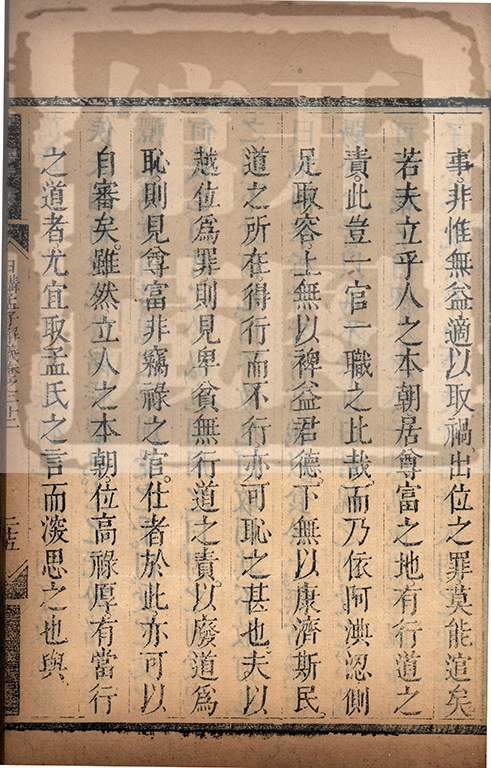 事。非惟無益適以取禍出位之罪莫能逭矣
若夫立乎人之本朝居尊富之地有行道之
責。此豈一官一職之比哉。而乃依阿淟涊側
足取容。上無以裨益君德。下無以康濟斯民
道之所在得行而不行亦可恥之甚也。夫以
越位爲罪則見卑貧無行道之責。以廢道爲
恥。則見尊富非竊祿之官。仕者於此亦可以
自審矣。雖然立人之本朝。位高祿厚有當行
之道者。尤宜取孟氏之言而深思之也與
日講四書解義卷二十
二五